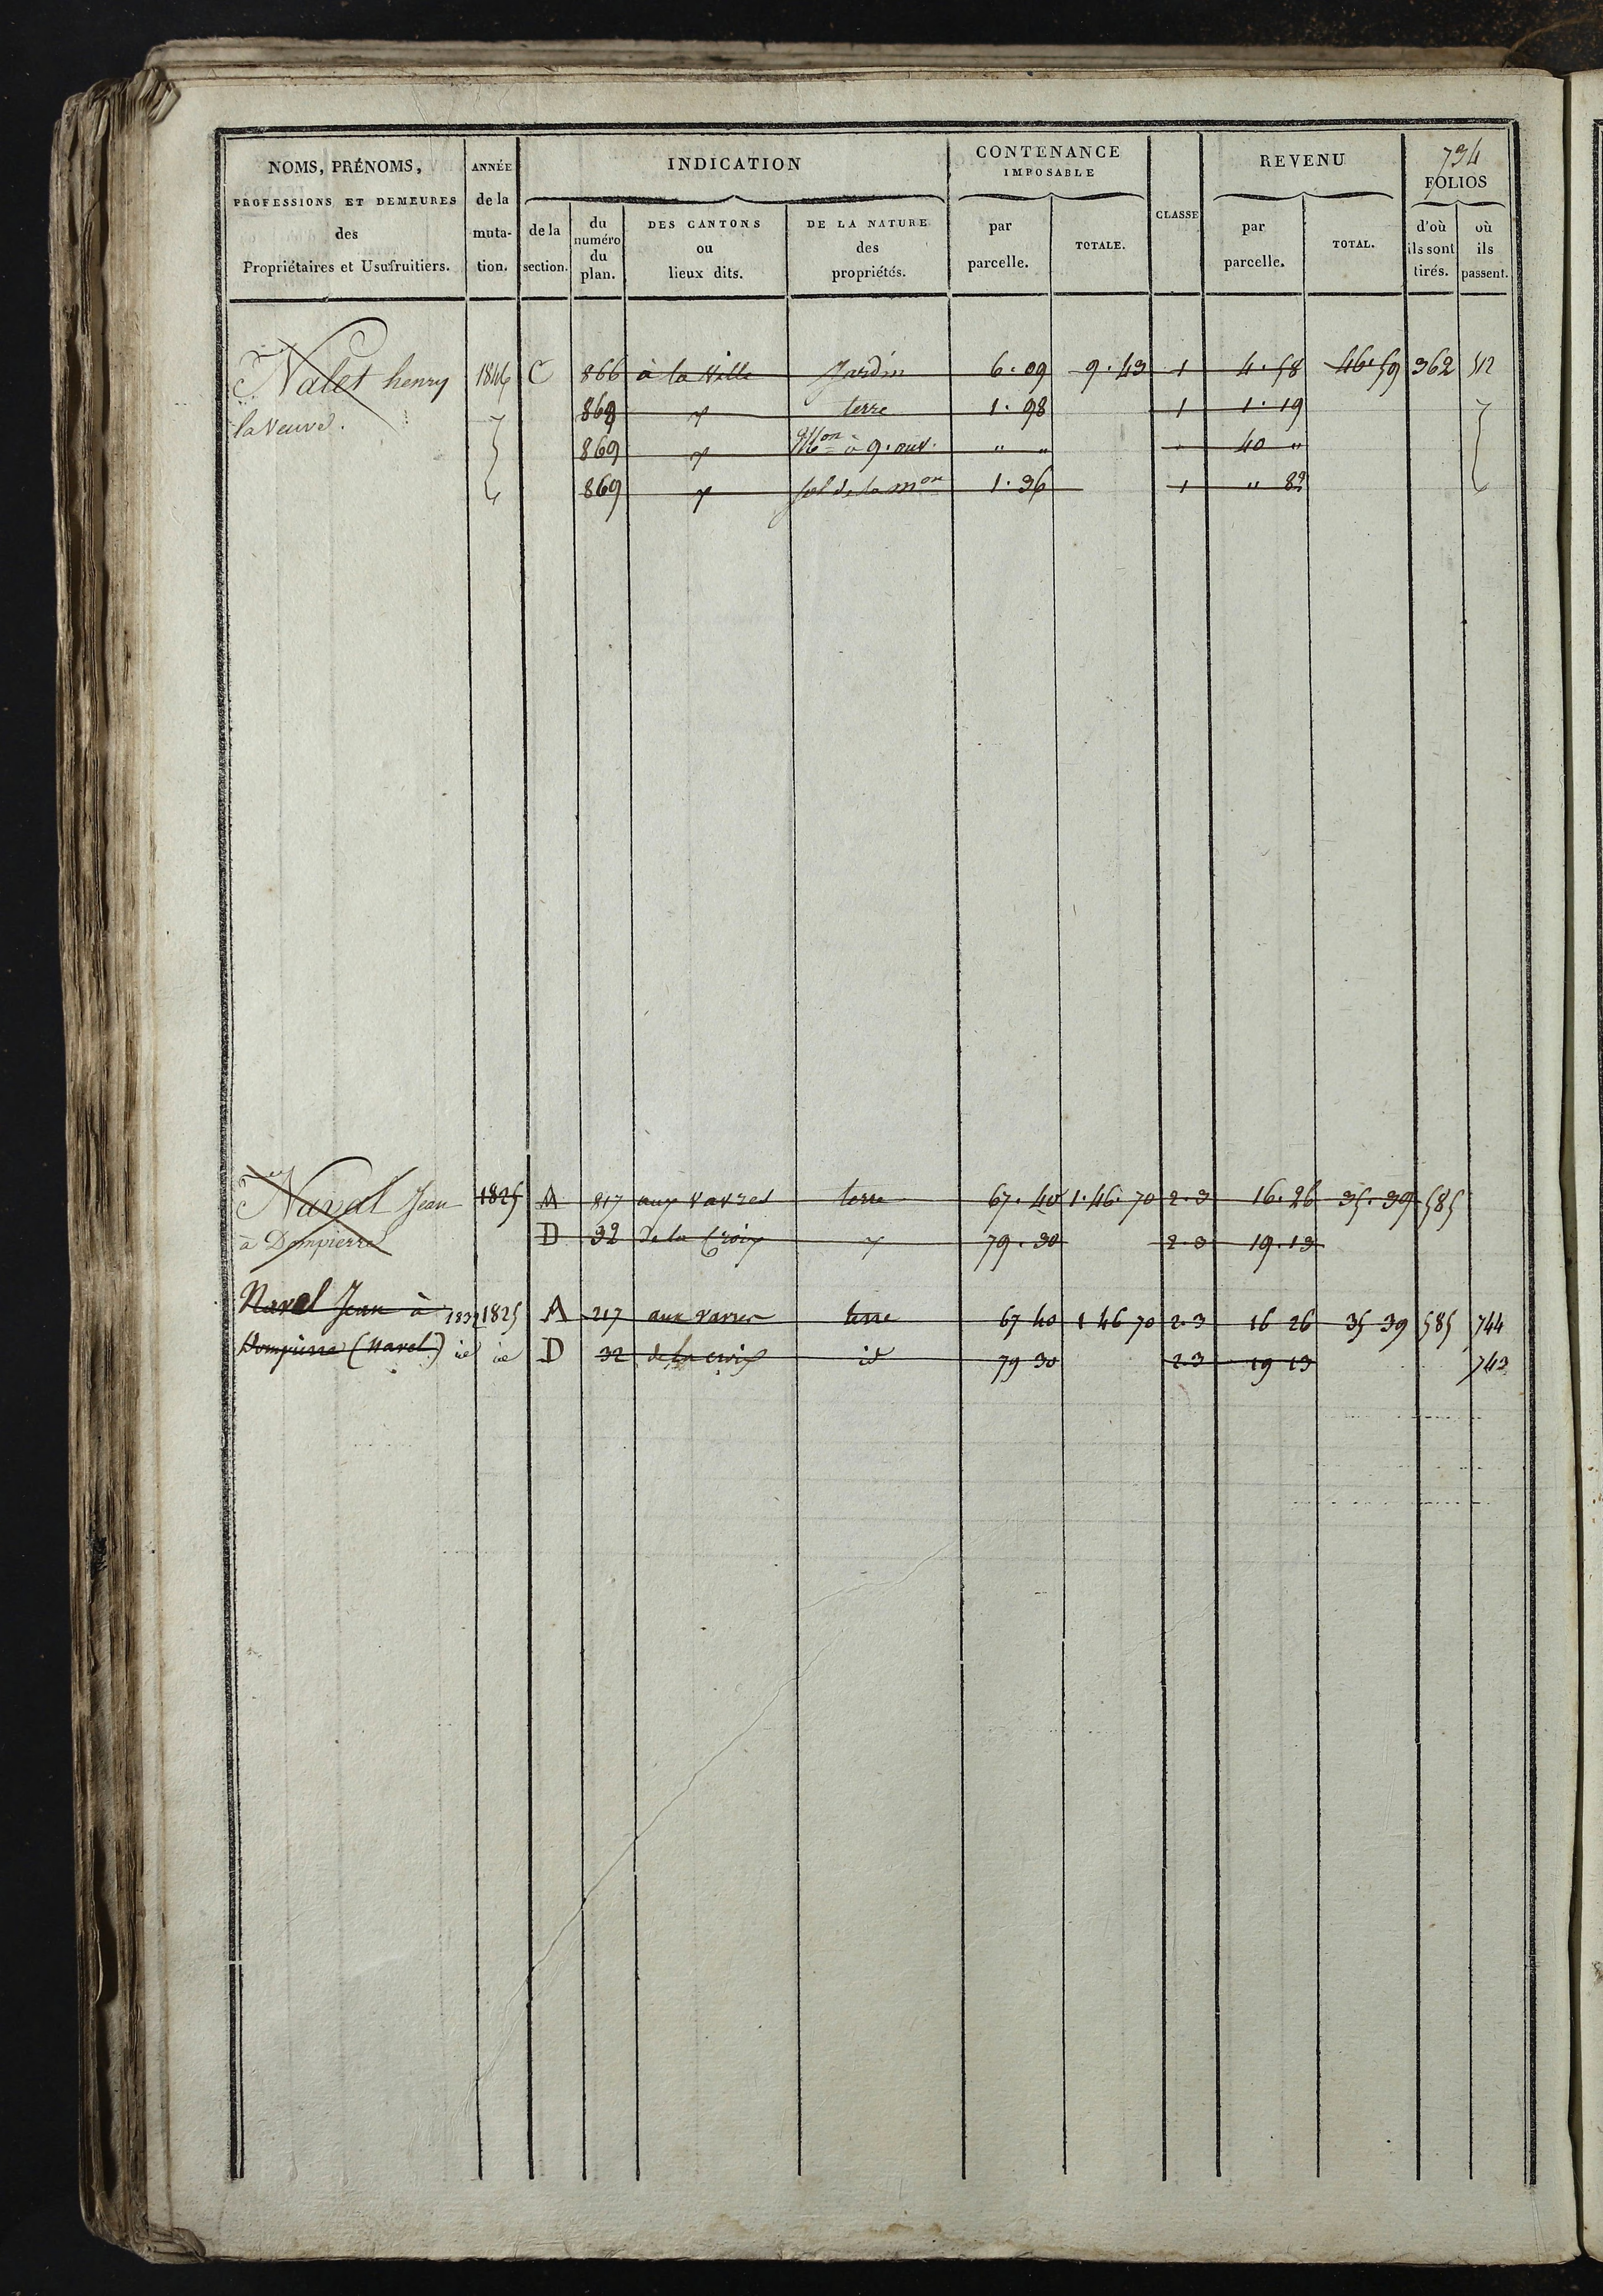 734
NOMS, PRÉNOMS, ANNÉE INDICATION CONTENANCE IMPOSABLE CLASSE REVENU FOLIOS
PROFESSIONS ET DEMEURES de la
des muta- de la du numéro du plan. DES CANTONS ou lieux dits. DE LA NATURE des propriétés. par parcelle. TOTALE. par parcelle. TOTAL. d'où ils sont tirés. où ils passent.
Propriétaires et Usufruitiers. tion. section.
Nalet henry 1846 C 866 à la Ville Jardin 6.09 9.43 1 4.58 46.59 362 512
la Veuve. 868 terre 1.98 1 1.19
869 à 9. ouv. " " " 40 "
869 sol de la mon 1.36 1 " 82
Naval Jean 1825 A 817 aux vavres terre 67.40 1.46.70 2.3 16.26 35.39 585
à Dompierre D 32 de la Croix 79.30 2.3 19.13
Navel Jean à 1832 1825 A 217 aux vavres terre 67 40 1 46 70 2.3 16 26 35 39 585 744
Dompierre (Navel) id id D 32 de la croix id 79 30 2.3 19 13 743